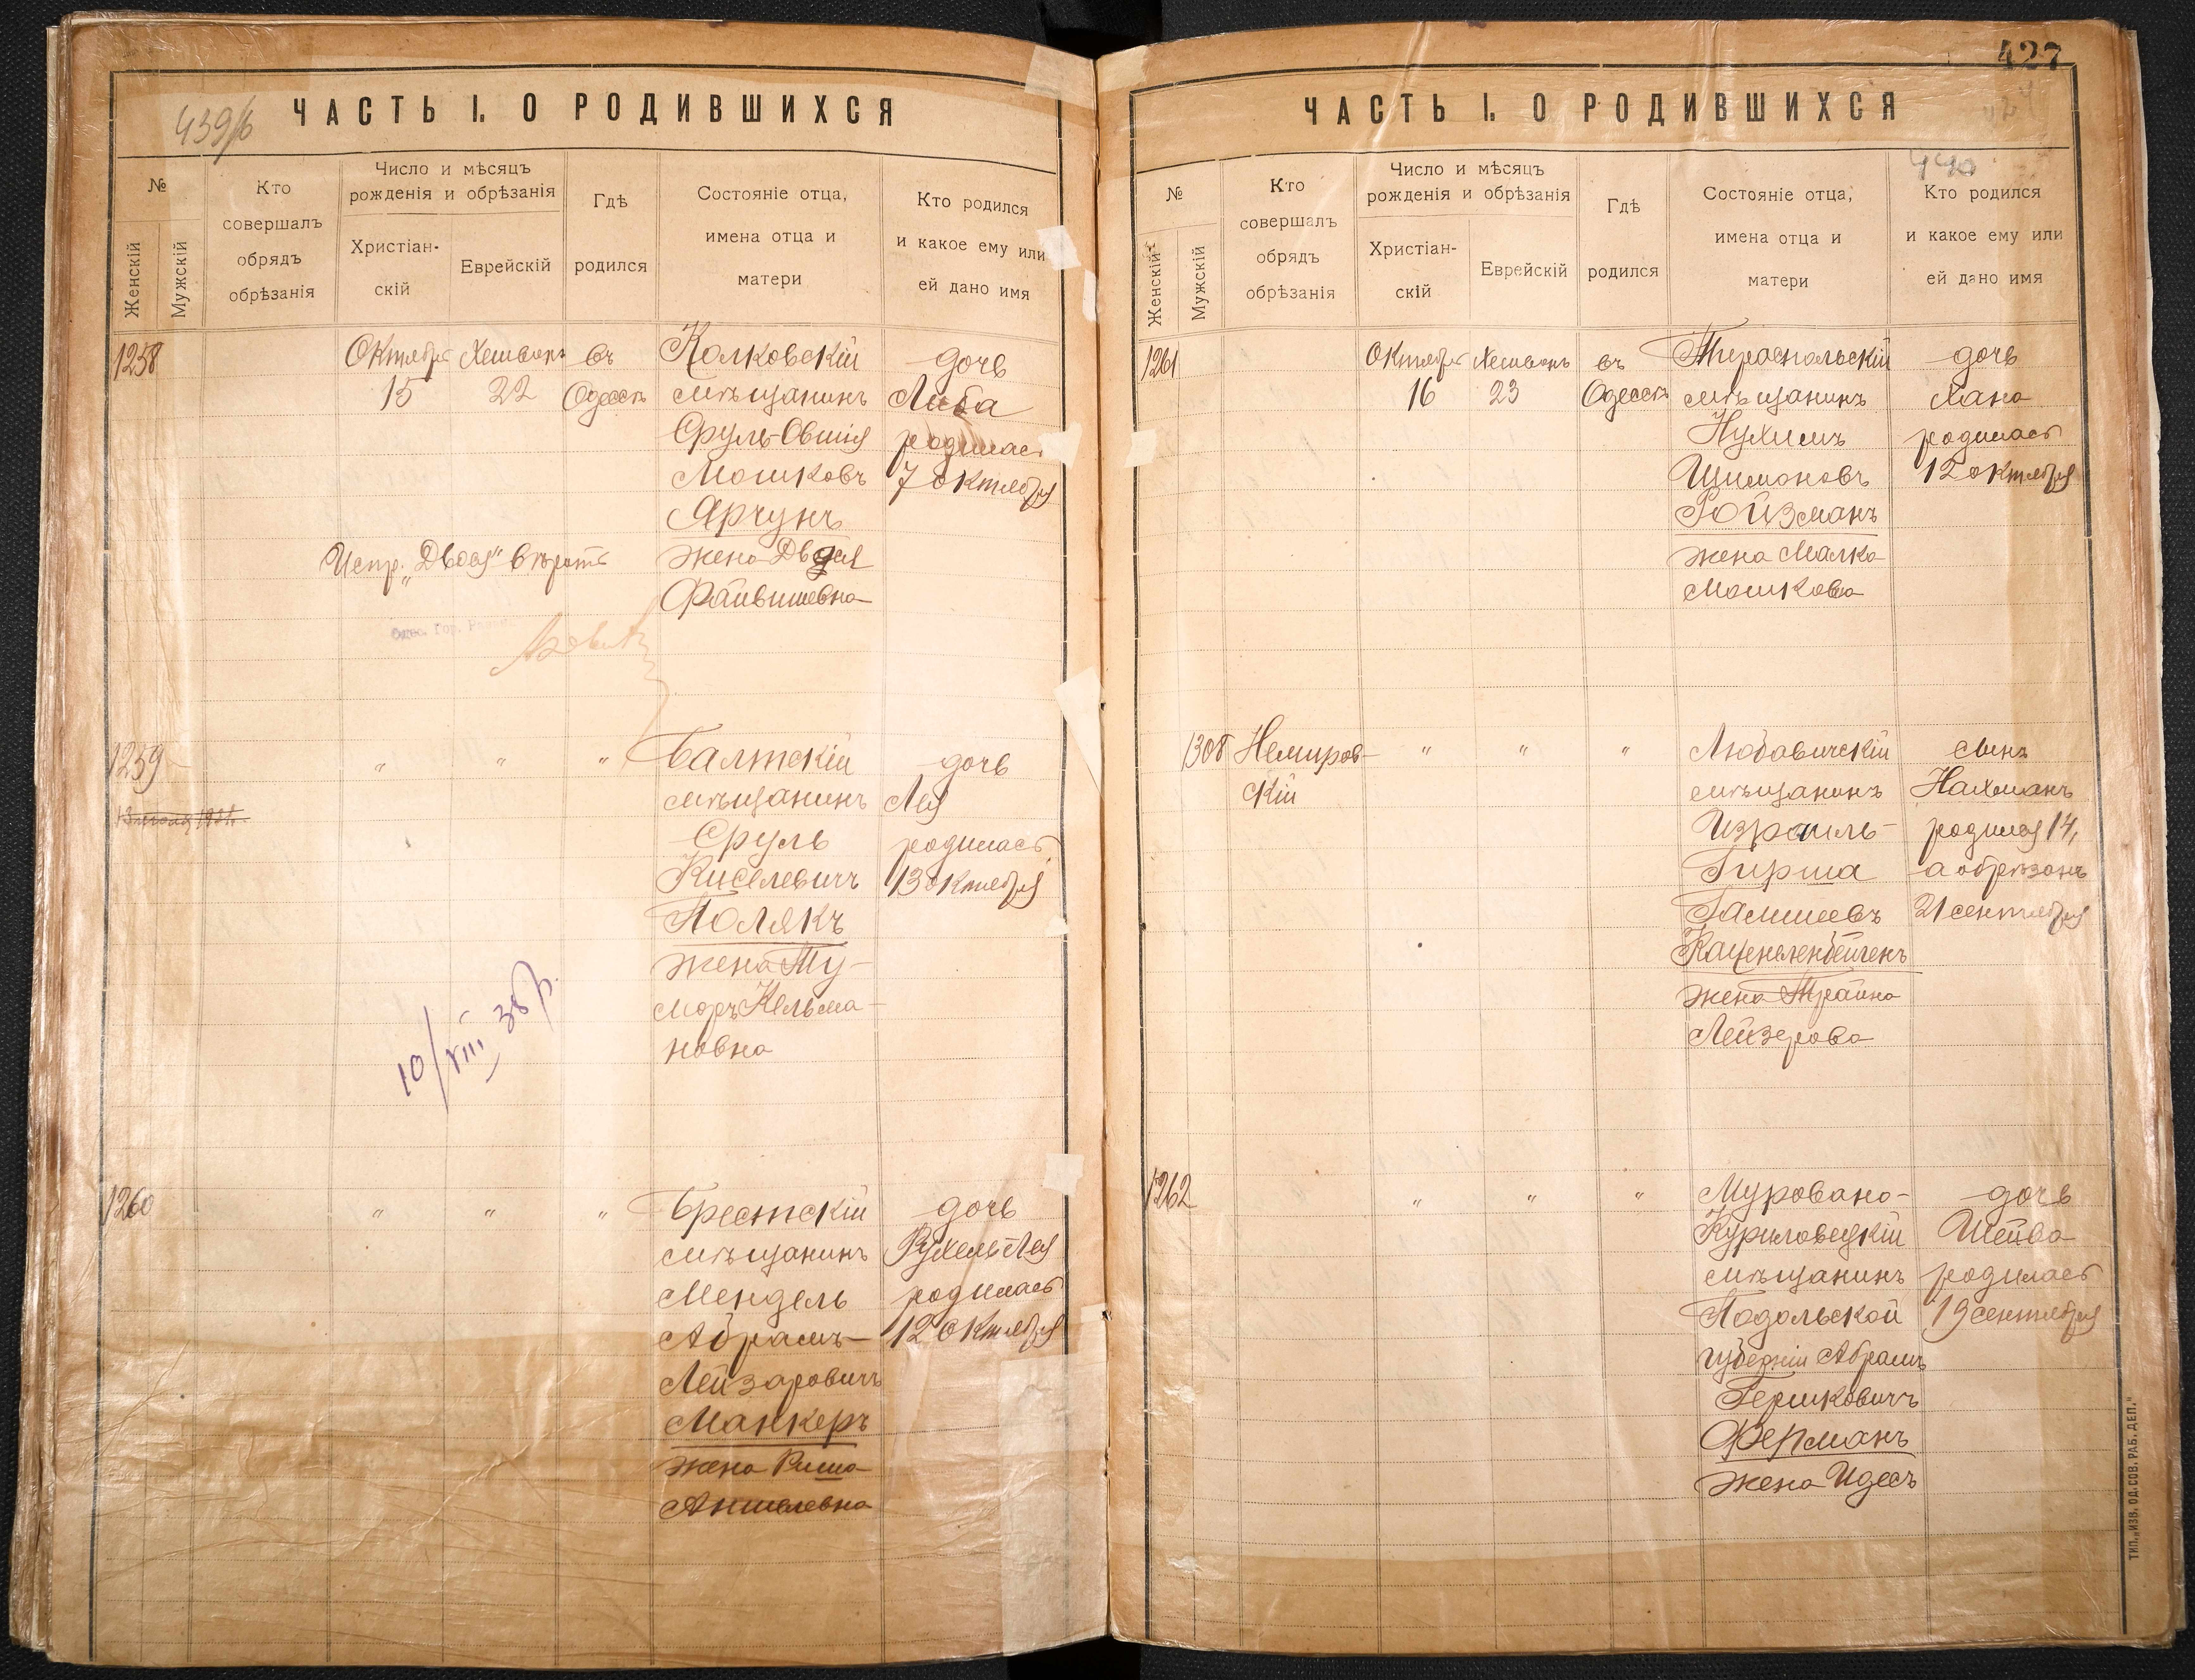 439/б
ЧАСТЬ I. О РОДИВШИХСЯ
№
Женскій
Мужскій
Кто
совершалъ
обрядъ
обрѣзанія
Число и мѣсяцъ
рожденія и обрѣзанія
Христіан-
скій
Еврейскій
Гдѣ
родился
Состояніе отца,
имена отца и
матери
Кто родился
и какое ему или
ей дано имя
1258
Октября
15
Хешванъ
22
въ
Одессѣ
Колковскій
мѣщанинъ
Сруль-Овшія
Мошковъ
Ярчунъ
жена Двося
Файвишевна
дочь
Либа
родилась
7 октября
Испр. „Двося" вѣрить
1259
"
"
"
Балтскій
мѣщанинъ
Сруль
Киселевичъ
Полякъ
жена Ту-
моръ Кельма-
новна
дочь
Лея
родилась
13 октября
10/VIII 38 р.
1260
"
"
"
Брестскій
мѣщанинъ
Мендель
Абрамъ-
Лейзаровичъ
Манкеръ
жена Риша
Аншелевна
дочь
Рухель Лея
родилась
12 октября
427
ЧАСТЬ I. О РОДИВШИХСЯ
440
№
Женскій
Мужскій
Кто
совершалъ
обрядъ
обрѣзанія
Число и мѣсяцъ
рожденія и обрѣзанія
Христіан-
скій
Еврейскій
Гдѣ
родился
Состояніе отца,
имена отца и
матери
Кто родился
и какое ему или
ей дано имя
1261
Октября
16
Хешванъ
23
въ
Одессѣ
Тираспольскій
мѣщанинъ
Нухимъ
Шимоновъ
Ройзманъ
жена Малка
Мошкова
дочь
Хана
родилась
12 октября
1308
Немиров-
скій
"
"
"
Любавичскій
мѣщанинъ
Израиль-
Гирша
Галишевъ
Каценеленбейгенъ
жена Трайна
Лейзерова
сынъ
Нахманъ
родился 14,
а обрѣзанъ
21 сентября
1262
"
"
"
Муровано-
Куриловецкій
мѣщанинъ
Подольской
губерніи Абрамъ
Гершковичъ
Ферманъ
жена Идесъ
дочь
Шейва
родилась
19 сентября
ТИП. „ИЗВ. ОД. СОВ. РАБ. ДЕП."